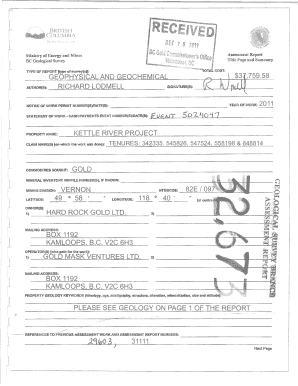 BRITISH
COLUMBIA
RECEIVED
DEC 16 2011
BC Gold Commissioner's Office
Vancouver, BC
Ministry of Energy and Mines
BC Geological Survey
Assessment Report
Title Page and Summary
TYPE OF REPORT
GEOPHYSICAL AND GEOCHEMICAL
TOTAL COST: $37,759.58
AUTHOR(S): RICHARD LODMELL
SIGNATURE(S):
NOTICE OF WORK PERMIT NUMBER(S)/DATE(S):
YEAR OF WORK: 2011
STATEMENT OF WORK - CASH PAYMENTS EVENT NUMBER(S)/DATE(S): EVENT 5024047
PROPERTY NAME: KETTLE RIVER PROJECT
CLAIM NAME(S) (on which the work was done): TENURES: 342335, 545826, 547524, 558198 & 848814
COMMODITIES SOUGHT: GOLD
MINERAL INVENTORY MINFILE NUMBER(S), IF KNOWN:
MINING DIVISION: VERNON
NTS/BCGS: 82E / 097
LATITUDE: 49 ° 58 '
LONGITUDE: 118 ° 40 '
OWNER(S):
1) HARD ROCK GOLD LTD.
2)
MAILING ADDRESS:
BOX 1192
KAMLOOPS, B.C. V2C 6H3
OPERATOR(S) [who paid for the work]:
1) GOLD MASK VENTURES LTD.
2)
MAILING ADDRESS:
BOX 1192
KAMLOOPS, B.C. V2C 6H3
PROPERTY GEOLOGY KEYWORDS (lithology, age, stratigraphy, structure, alteration, mineralization, size and attitude):
PLEASE SEE GEOLOGY ON PAGE 1 OF THE REPORT
REFERENCES TO PREVIOUS ASSESSMENT WORK AND ASSESSMENT REPORT NUMBERS:
29603, 31111
Next Page
GEOLOGICAL SURVEY BRANCH
ASSESSMENT REPORT
32,673